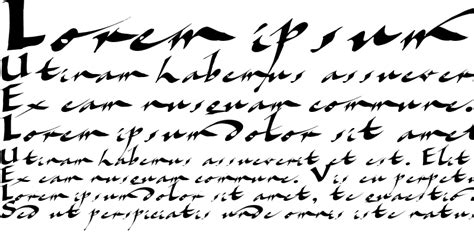 Lorem ipsum
Utinam habemus assueverit
Ex eam nusquam commune.
Lorem ipsum dolor sit amet
Utinam habemus assueverit et est. Elit
Ex eam nusquam commune. Vis eu perpetu
Lorem ipsum dolor sit amet, te
Sed ut perspiciatis unde omnis iste natu